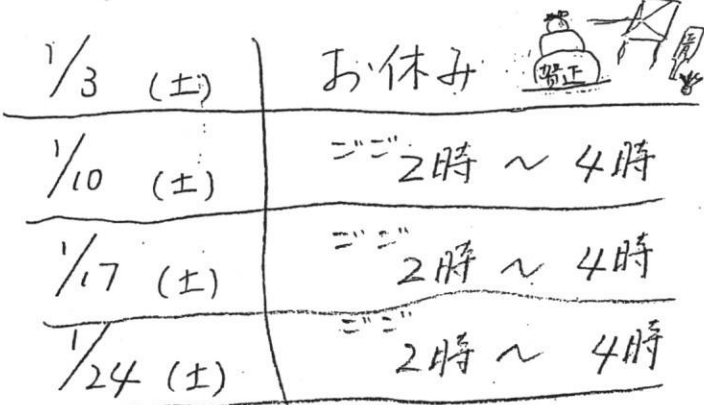 1/3 (土) お休み 賀正
1/10 (土) ごご 2時 ~ 4時
1/17 (土) ごご 2時 ~ 4時
1/24 (土) ごご 2時 ~ 4時